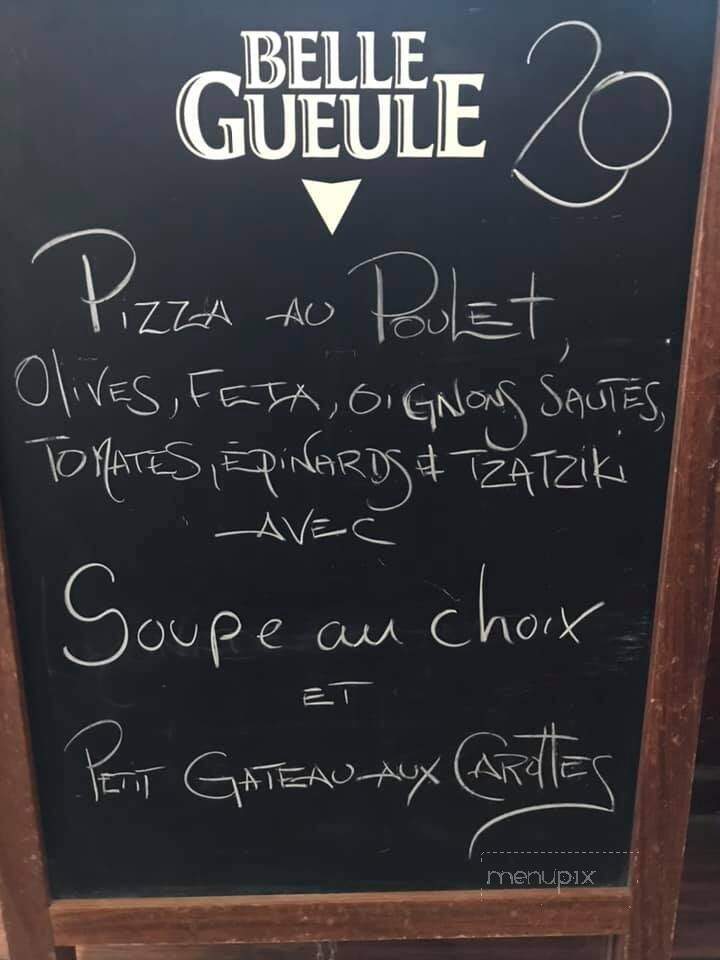 BELLE
GUEULE
20
Pizza au Poulet,
Olives, Feta, oignons sautés,
Tomates, épinards & Tzatziki
avec
Soupe au choix
et
Petit Gateau aux Carottes
menupix